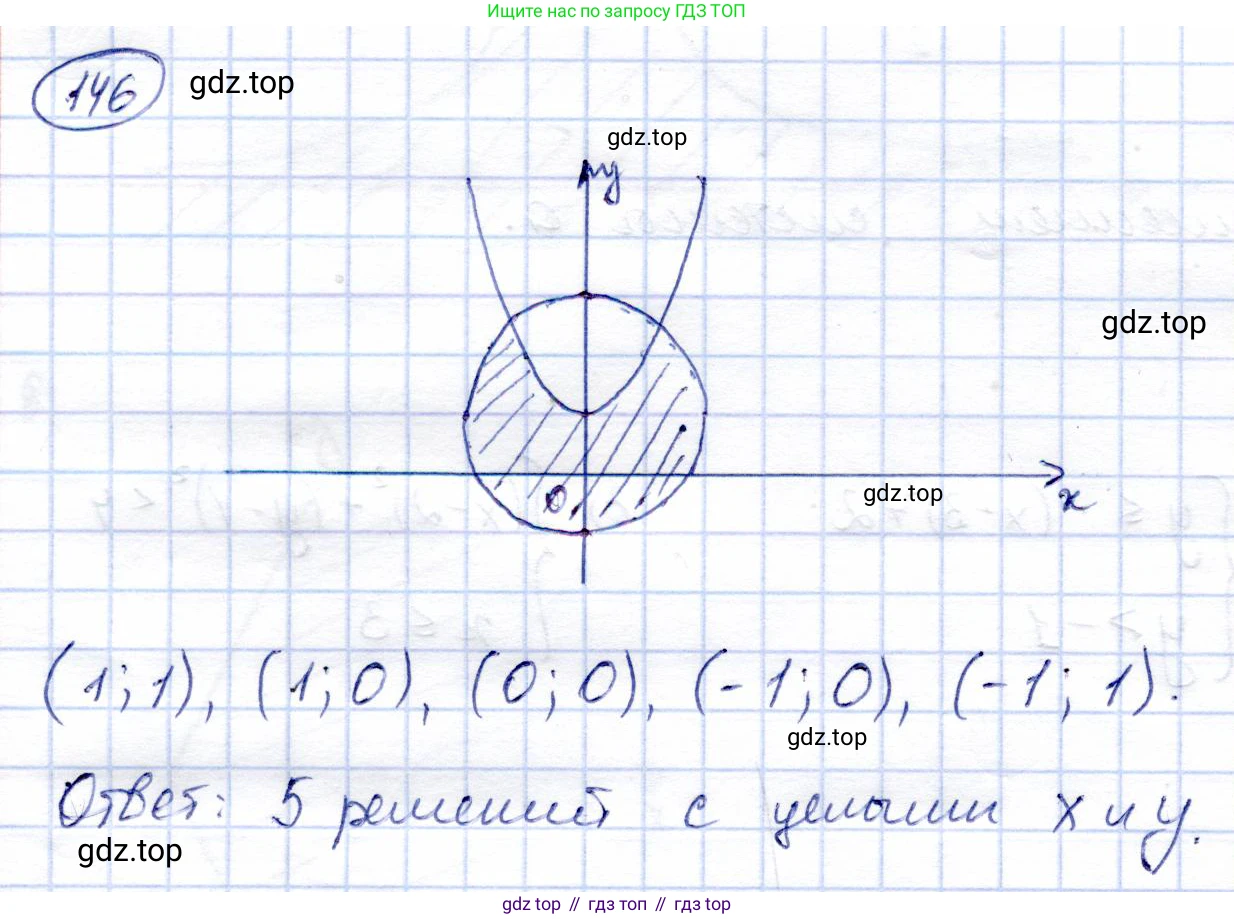 Ищите нас по запросу ГДЗ ТОП
146 gdz.top
gdz.top
y
gdz.top
0
gdz.top
x
(1; 1), (1; 0), (0; 0), (-1; 0), (-1; 1).
gdz.top
Ответ: 5 решений с целыми x и y.
gdz.top
gdz top // гдз топ // gdz top